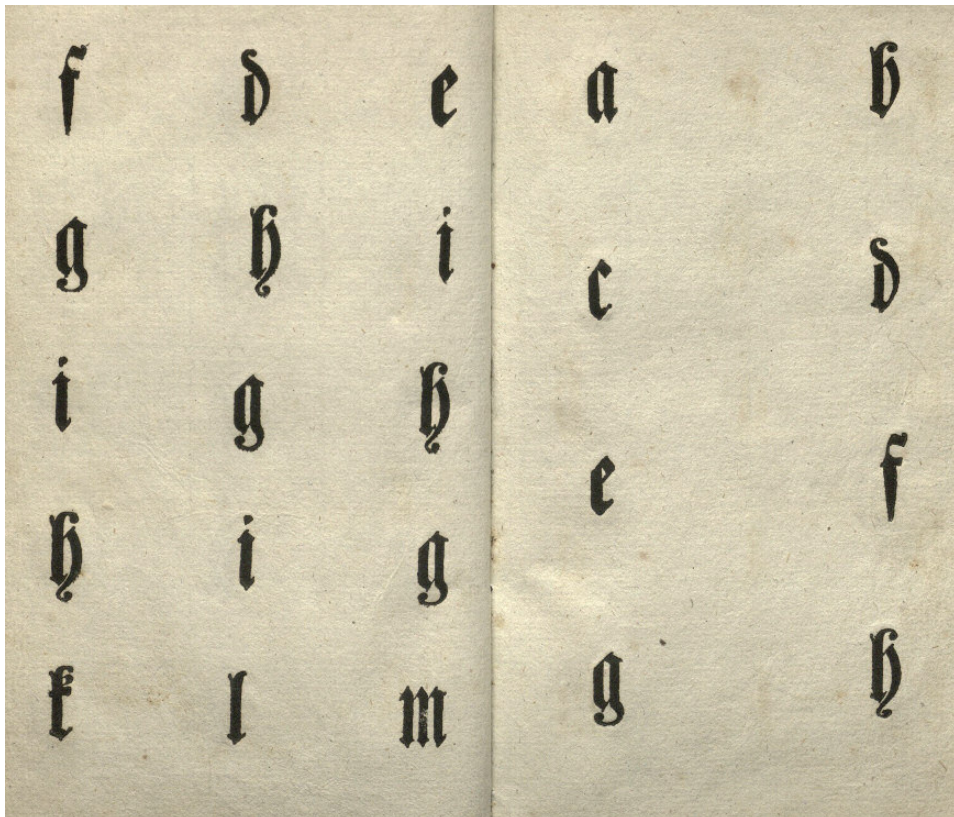 f d e
g h i
i g h
h i g
k l m
a b
c d
e f
g h